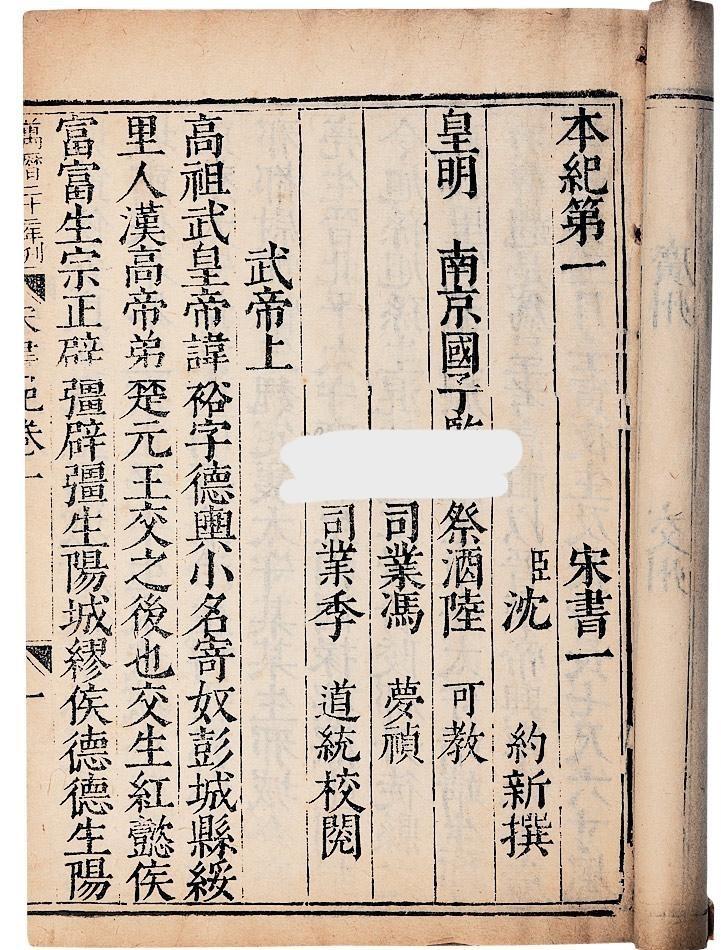 本紀第一 宋書一
臣沈 約新撰
皇明 南京國子監祭酒陸 可教
司業馮 夢禎
司業季 道統校閱
武帝上
高祖武皇帝諱裕字德輿小名寄奴彭城縣綏
里人漢高帝弟楚元王交之後也交生紅懿侯
富富生宗正辟彊辟彊生陽城繆侯德德生陽
萬曆二十二年刊 宋書紀卷一 一